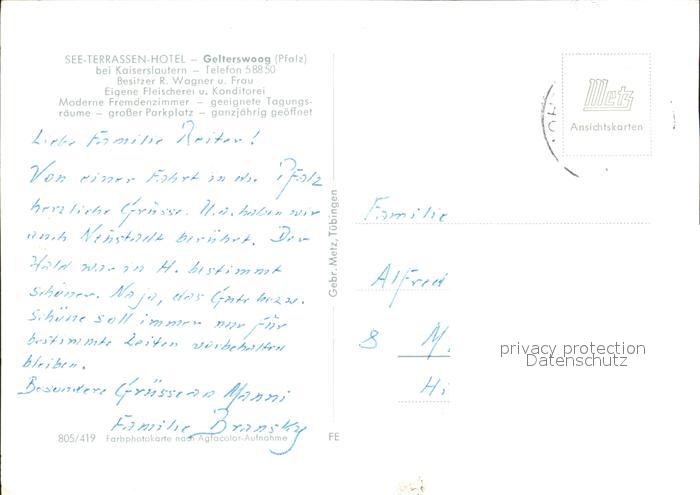 SEE-TERRASSEN-HOTEL – Gelterswoog (Pfalz)
bei Kaiserslautern – Telefon 58850
Besitzer R. Wagner u. Frau
Eigene Fleischerei u. Konditorei
Moderne Fremdenzimmer – geeignete Tagungs-
räume – großer Parkplatz – ganzjährig geöffnet
Liebe Familie Reiter!
Von einer Fahrt in die Pfalz
herzliche Grüsse. U.a. haben wir
auch Neustadt berührt. Der
Wald war in H. bestimmt
schöner. Na ja, das Gute bezw.
Schöne soll immer nur für
bestimmte Zeiten vorbehalten
bleiben.
Besondere Grüsse an Manni
Familie Bransky
805/419 Farbphotokarte nach Agfacolor-Aufnahme
FE
Gebr. Metz, Tübingen
Metz
Ansichtskarten
Familie
Alfred
8 M.
Hi
privacy protection
Datenschutz